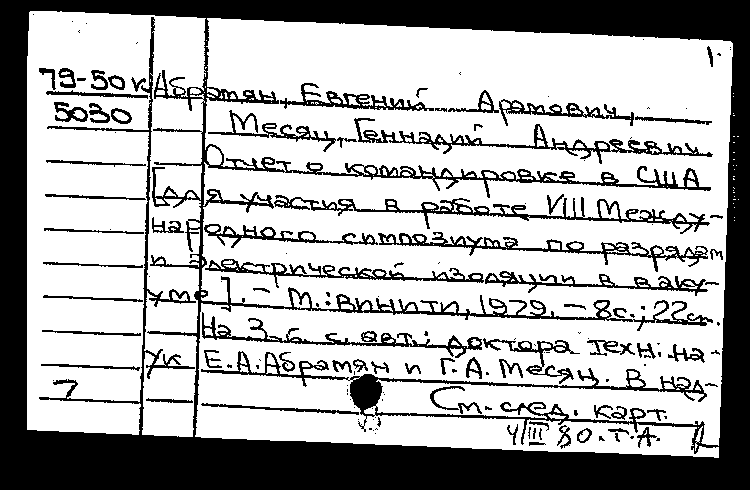 1.
79-50к Абрамян, Евгений Арамович,
5030 Месяц, Геннадий Андреевич
Отчет о командировке в США
[для участия в работе VIII Между-
народного симпозиума по разрядам
и электрической изоляции в ваку-
уме]. - М.: ВИНИТИ, 1979. - 8с.; 22см.
На 3.б. с. авт.: доктора техн. на-
ук Е.А. Абрамян и Г.А. Месяц. В над-
7 См. след. карт.
4/III 80. Т.А.